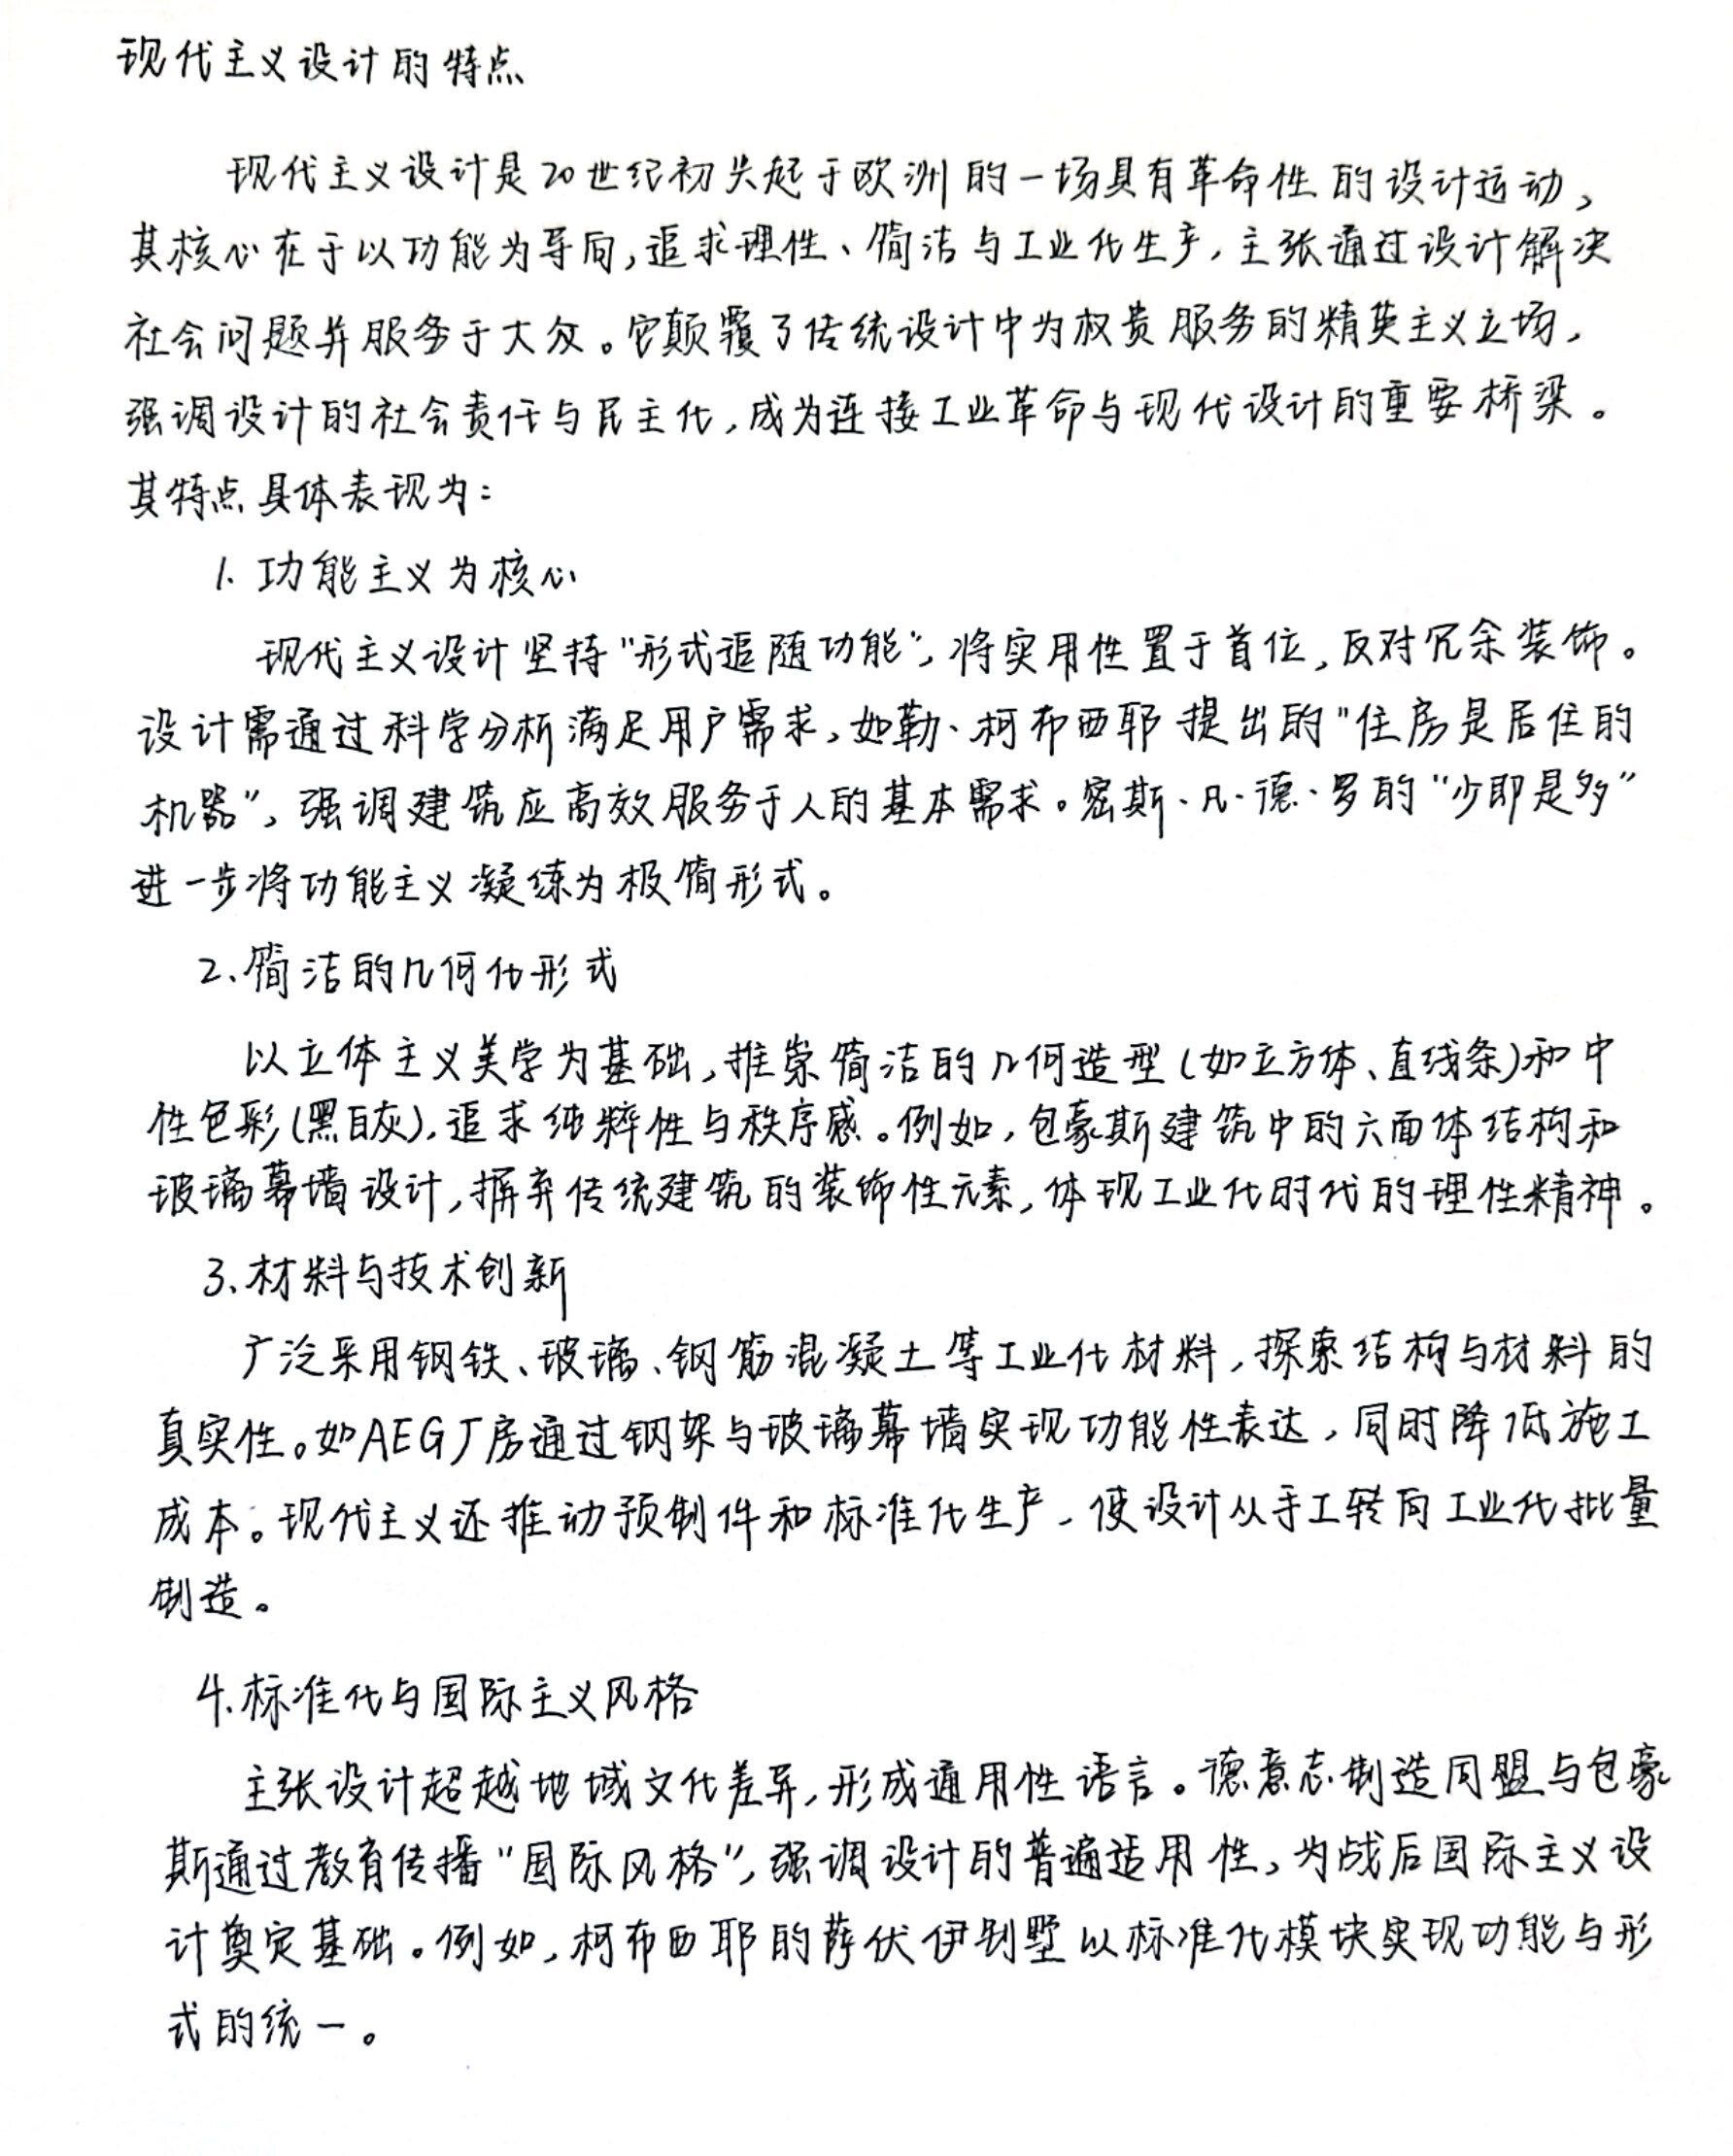 现代主义设计的特点
现代主义设计是20世纪初兴起于欧洲的一场具有革命性的设计运动,
其核心在于以功能为导向,追求理性、简洁与工业化生产,主张通过设计解决
社会问题并服务于大众。它颠覆了传统设计中为权贵服务的精英主义立场,
强调设计的社会责任与民主化,成为连接工业革命与现代设计的重要桥梁。
其特点具体表现为:
1.功能主义为核心
现代主义设计坚持"形式追随功能",将实用性置于首位,反对冗余装饰。
设计需通过科学分析满足用户需求,如勒·柯布西耶提出的"住房是居住的
机器",强调建筑应高效服务于人的基本需求。密斯·凡·德·罗的"少即是多"
进一步将功能主义凝练为极简形式。
2.简洁的几何化形式
以立体主义美学为基础,推崇简洁的几何造型(如立方体、直线条)和中
性色彩(黑白灰),追求纯粹性与秩序感。例如,包豪斯建筑中的六面体结构和
玻璃幕墙设计,摒弃传统建筑的装饰性元素,体现工业化时代的理性精神。
3.材料与技术创新
广泛采用钢铁、玻璃、钢筋混凝土等工业化材料,探索结构与材料的
真实性。如AEG厂房通过钢架与玻璃幕墙实现功能性表达,同时降低施工
成本。现代主义还推动预制件和标准化生产,使设计从手工转向工业化批量
制造。
4.标准化与国际主义风格
主张设计超越地域文化差异,形成通用性语言。德意志制造同盟与包豪
斯通过教育传播"国际风格",强调设计的普遍适用性,为战后国际主义设
计奠定基础。例如,柯布西耶的萨伏伊别墅以标准化模块实现功能与形
式的统一。